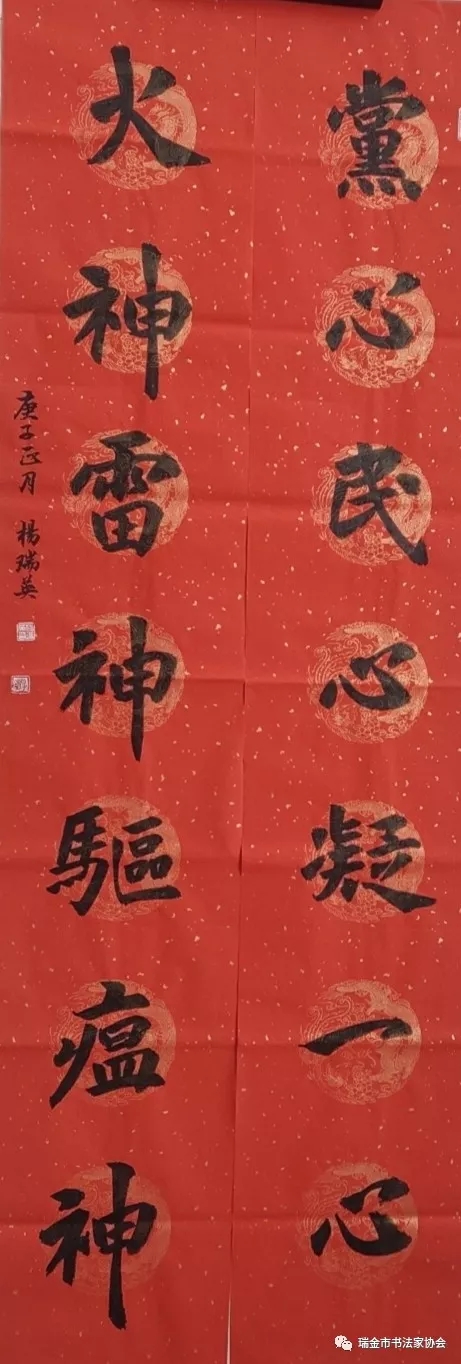 黨心民心凝一心
火神雷神驅瘟神
庚子正月 楊瑞英
瑞金市书法家协会